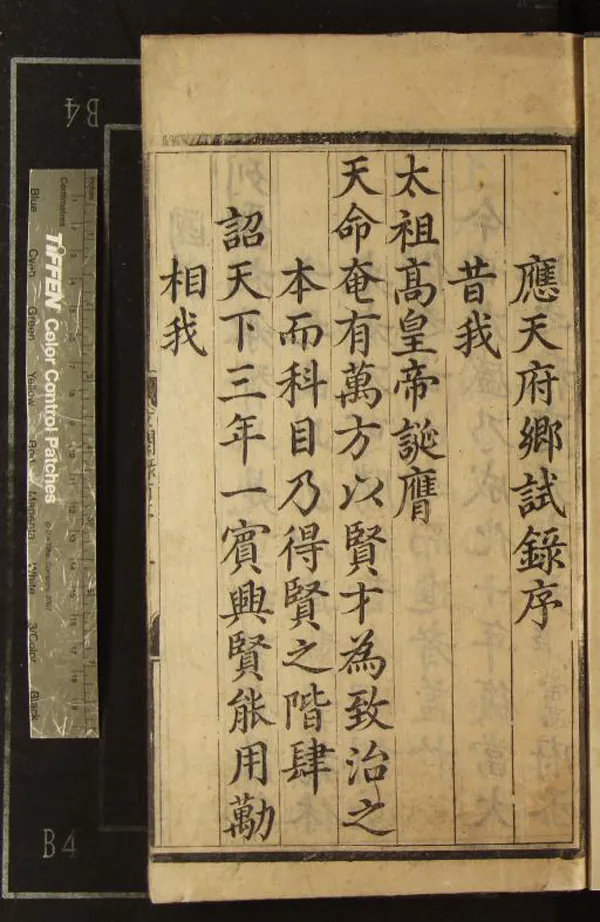 應天府鄉試錄序
昔我
太祖高皇帝誕膺
天命奄有萬方以賢才為致治之
本而科目乃得賢之階肆
詔天下三年一賓興賢能用勸
相我
B4
B4
TIFFEN Color Control Patches
Blue
Cyan
Green
Yellow
Red
Magenta
White
3/Color
Black
Inches
Centimetres